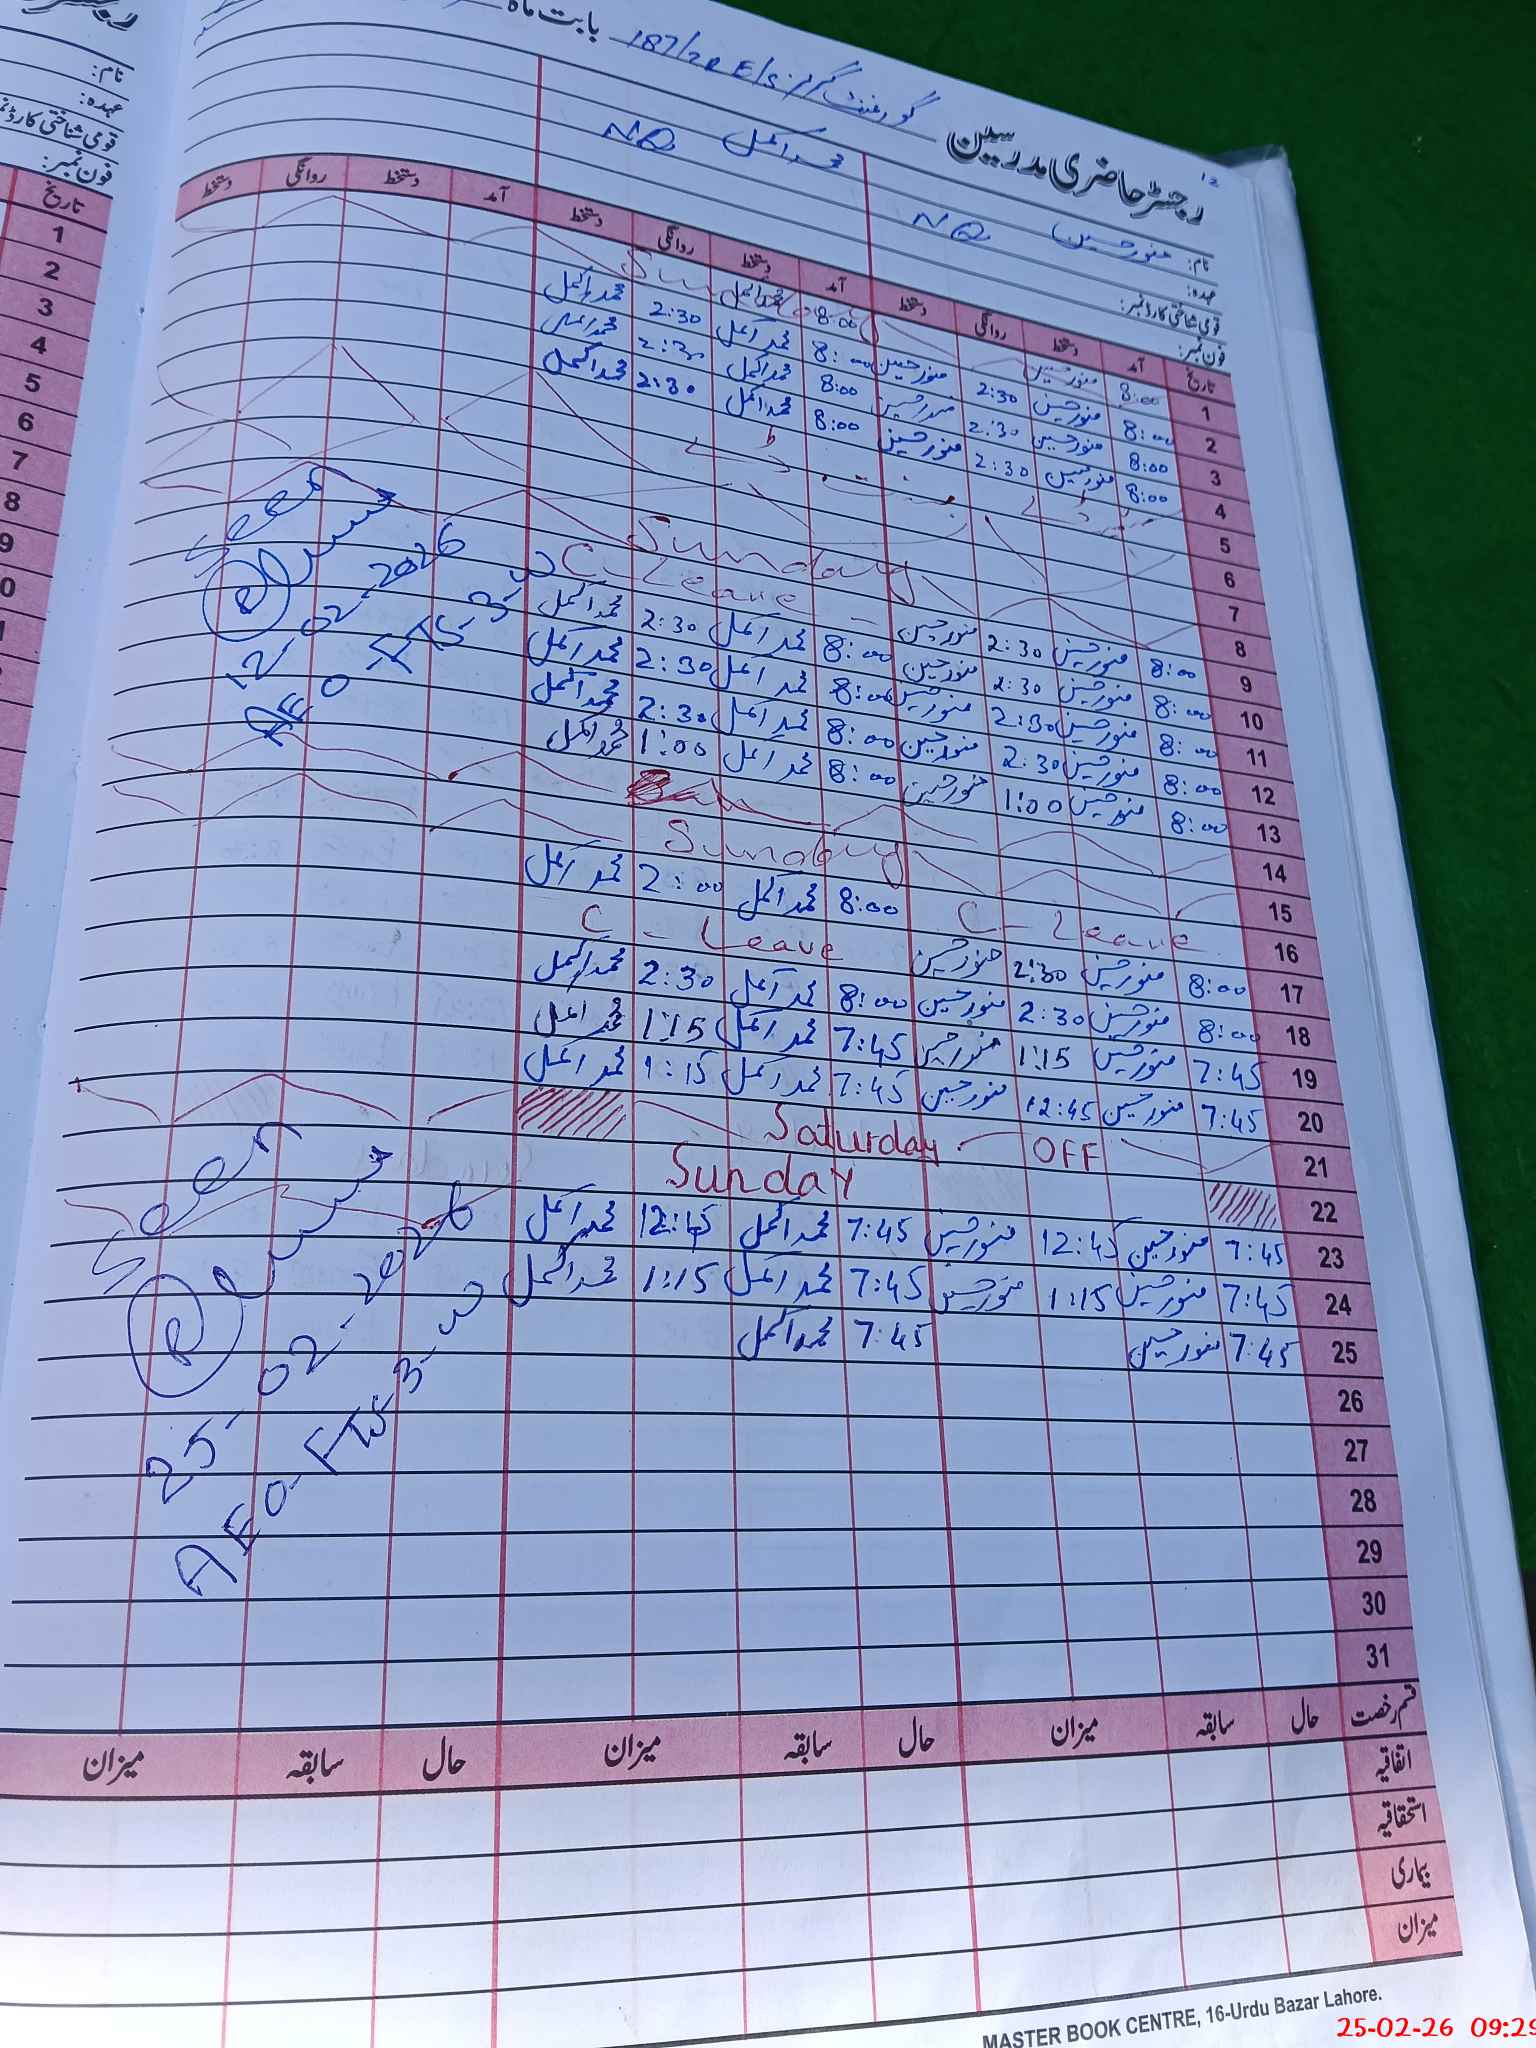 رجسٹر حاضری مدرسین گورنمنٹ گرلز E/S 187/7R بابت ماہ
12
نام: منور حسین NQ محمد اکمل NQ
عہدہ:
قومی شناختی کارڈ نمبر:
فون نمبر:
تاریخ آمد دستخط روانگی دستخط آمد دستخط روانگی دستخط آمد دستخط روانگی دستخط
1 8:00 منور حسین Sunday 8:00 محمد اکمل
2 8:00 منور حسین 2:30 منور حسین 8:00 محمد اکمل 2:30 محمد اکمل
3 8:00 منور حسین 2:30 منور حسین 8:00 محمد اکمل 2:30 محمد اکمل
4 8:00 منور حسین 2:30 منور حسین 8:00 محمد اکمل 2:30 محمد اکمل
5
6
7
8 Sunday
9 8:00 منور حسین 2:30 منور حسین C-Leave
10 8:00 منور حسین 2:30 منور حسین 8:00 محمد اکمل 2:30 محمد اکمل
11 8:00 منور حسین 2:30 منور حسین 8:00 محمد اکمل 2:30 محمد اکمل
12 8:00 منور حسین 2:30 منور حسین 8:00 محمد اکمل 2:30 محمد اکمل
13 8:00 منور حسین 1:00 منور حسین 8:00 محمد اکمل 1:00 محمد اکمل
14
15 Sunday
16 C-Leave 8:00 محمد اکمل 2:00 محمد اکمل
17 8:00 منور حسین 2:30 منور حسین C-Leave
18 8:00 منور حسین 2:30 منور حسین 8:00 محمد اکمل 2:30 محمد اکمل
19 7:45 منور حسین 1:15 منور حسین 7:45 محمد اکمل 1:15 محمد اکمل
20 7:45 منور حسین 12:45 منور حسین 7:45 محمد اکمل 1:15 محمد اکمل
21 Saturday OFF
22 Sunday
23 7:45 منور حسین 12:45 منور حسین 7:45 محمد اکمل 12:45 محمد اکمل
24 7:45 منور حسین 1:15 منور حسین 7:45 محمد اکمل 1:15 محمد اکمل
25 7:45 منور حسین 7:45 محمد اکمل
26
27
28
29
30
31
Seen
12-02-2026
AEO-FTS-3-W
Seen
25-02-2026
AEO-FTS-3-W
قسم رخصت حال سابقہ میزان حال سابقہ میزان حال سابقہ میزان
اتفاقیہ
استحقاقیہ
بیماری
میزان
MASTER BOOK CENTRE, 16-Urdu Bazar Lahore.
نام:
عہدہ:
قومی شناختی کارڈ نمبر
فون نمبر:
تاریخ
1
2
3
4
5
6
7
8
9
0
1
25-02-26 09:29